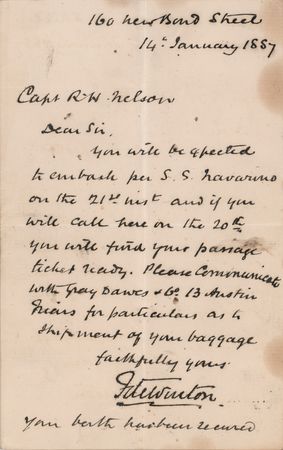 160 New Bond Street
14th January 1887
Capt R. H. Nelson
Dear Sir,
You will be expected
to embark per S. S. Navarino
on the 21st inst and if you
will call here on the 20th
you will find your passage
ticket ready. Please Communicate
with Gray Dawes & Co. 13 Austin
Friars for particulars as to
shipment of your baggage
faithfully yours
F de Winton
Your berth has been secured